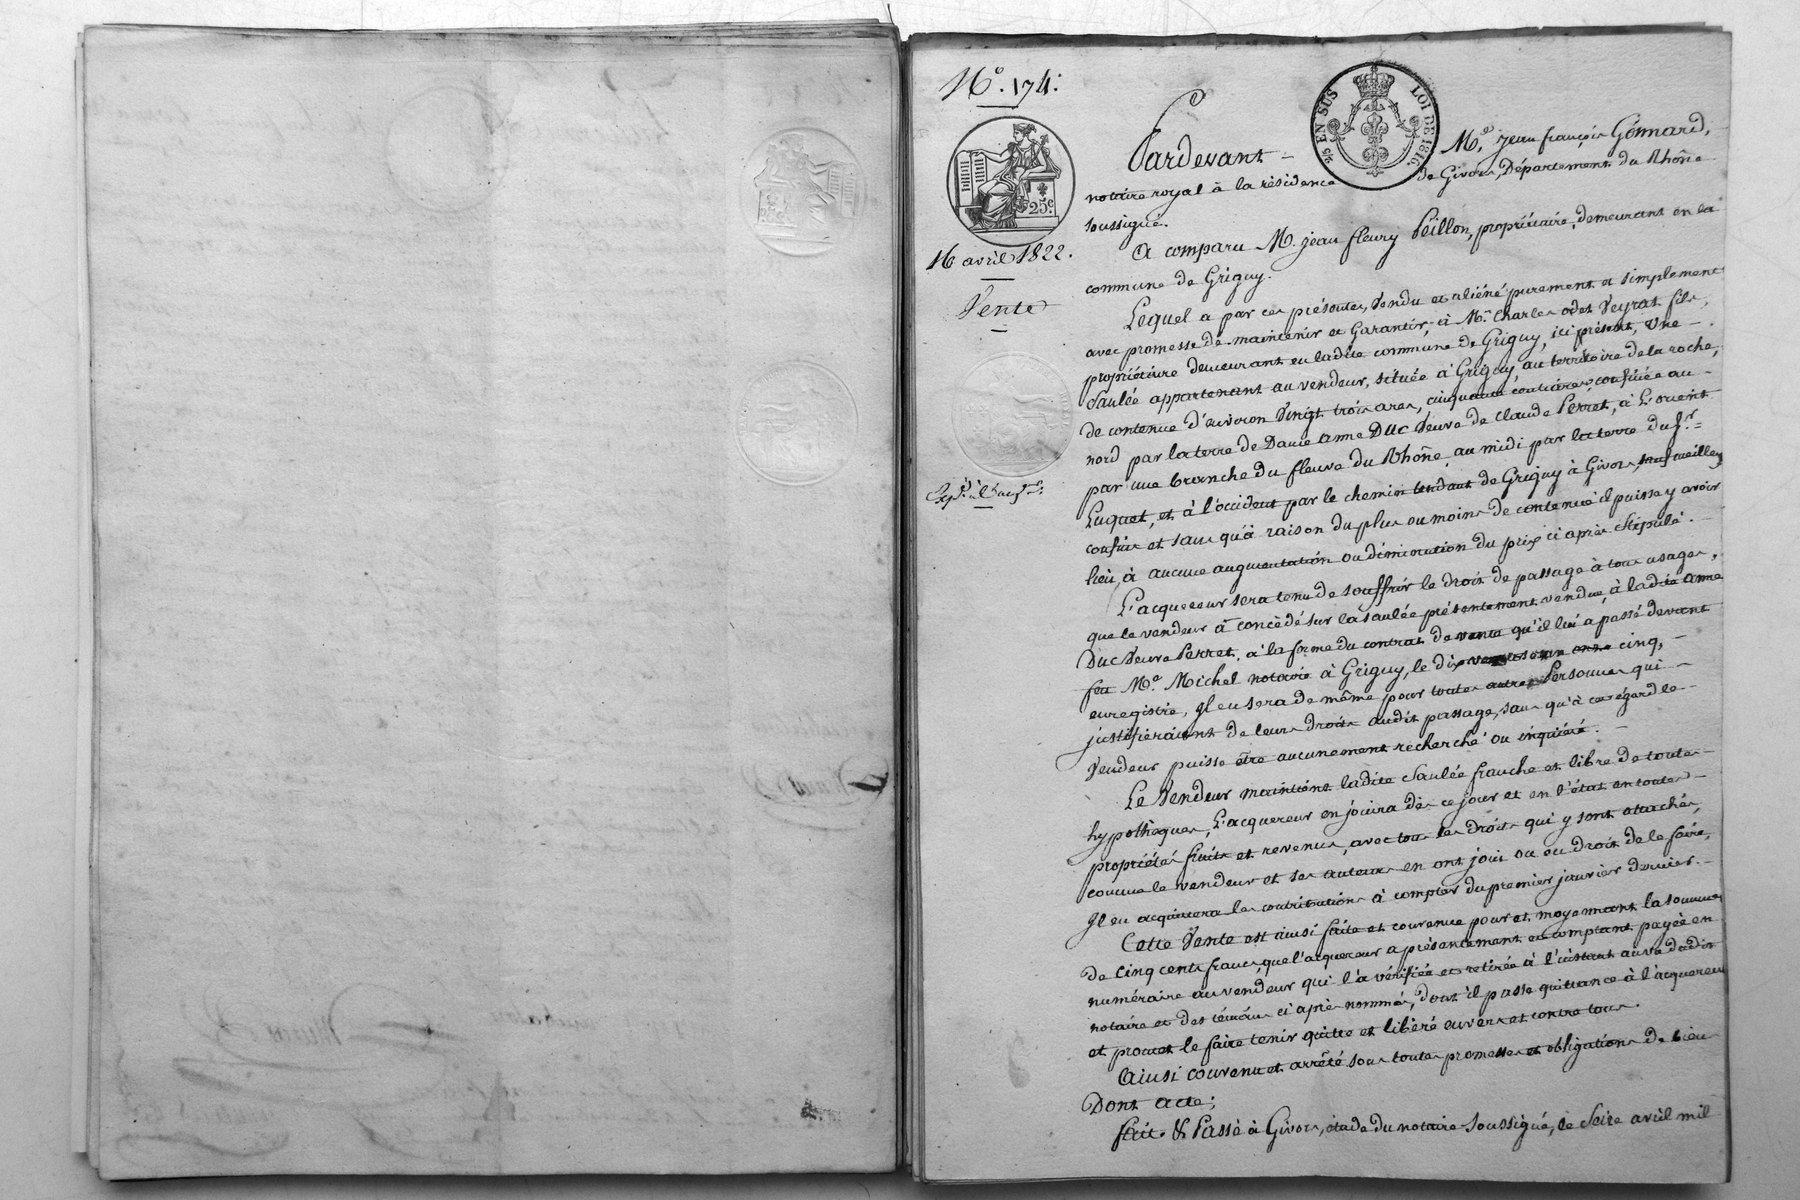 N.° 174.
25 EN SUS LOI DE 1816.
25c
16 avril 1822.
Vente
Pardevant M.e jean françois Gonnard,
notaire royal à la résidence de Givors, Département du Rhône
soussigné.
A comparu M. jean fleury Peillon, propriétaire, demeurant en la
commune de Grigny.
Lequel a par ces présentes, vendu et aliéné purement et simplement
avec promesse de maintenir et garantir, à Mr. Charles odet Veyrat fils,
propriétaire demeurant en ladite commune de Grigny, ici présent, Une
Saulée appartenant au vendeur, située à Grigny, au territoire de la roche,
de contenue d'environ Vingt trois ares, cinquante centiares confinée au
nord par la terre de Dame anne Duc Veuve de Claude Perret, à L'orient
par une branche du fleuve du Rhône, au midi par la terre du Sr.
Luquet, et à l'occident par le chemin tendant de Grigny à Givors, sauf meilleurs
confins et sans qu'à raison du plus ou moins de contenue il puisse y avoir
lieu à aucune augmentation ou diminution du prix ci après stipulé.
L'acquereur sera tenu de souffrir le droit de passage à tous usages,
que le vendeur a concédé sur la saulée présentement vendue, à ladite anne
Duc Veuve Perret, à la forme du contrat de vente qu'il lui a passé devant
feu M.e Michel notaire à Grigny, le dix cinq,
enregistré, Il en sera de même pour toutes autres Personnes qui
justifieraient de leurs droits audit passage, sans qu'à cet égard le
Vendeur puisse être aucunement recherché ou inquiété.
Le Vendeur maintient ladite Saulée franche et libre de toutes
hypothèques, L'acquereur en jouira dès ce jour et en l'état en toutes
propriétés fruits et revenus, avec tous les droits qui y sont attachés,
comme le vendeur et ses auteurs en ont joui ou eu droit de le faire,
Il en acquittera les contributions à compter du premier janvier dernier.
Cette Vente est ainsi faite et convenue pour et moyennant la somme
de cinq cents francs, que l'acquereur a présentement et comptant payée en
numéraire au vendeur qui l'a vérifiée et retirée à l'instant au vu dudit
notaire et des témoins ci après nommés, dont il passe quittance à l'acquereur
et promet le faire tenir quitte et libéré envers et contre tous.
Ainsi convenu et arrêté sous toutes promesses et obligations de biens
Dont acte;
fait & Passé à Givors, étude du notaire soussigné, le Seize avril mil